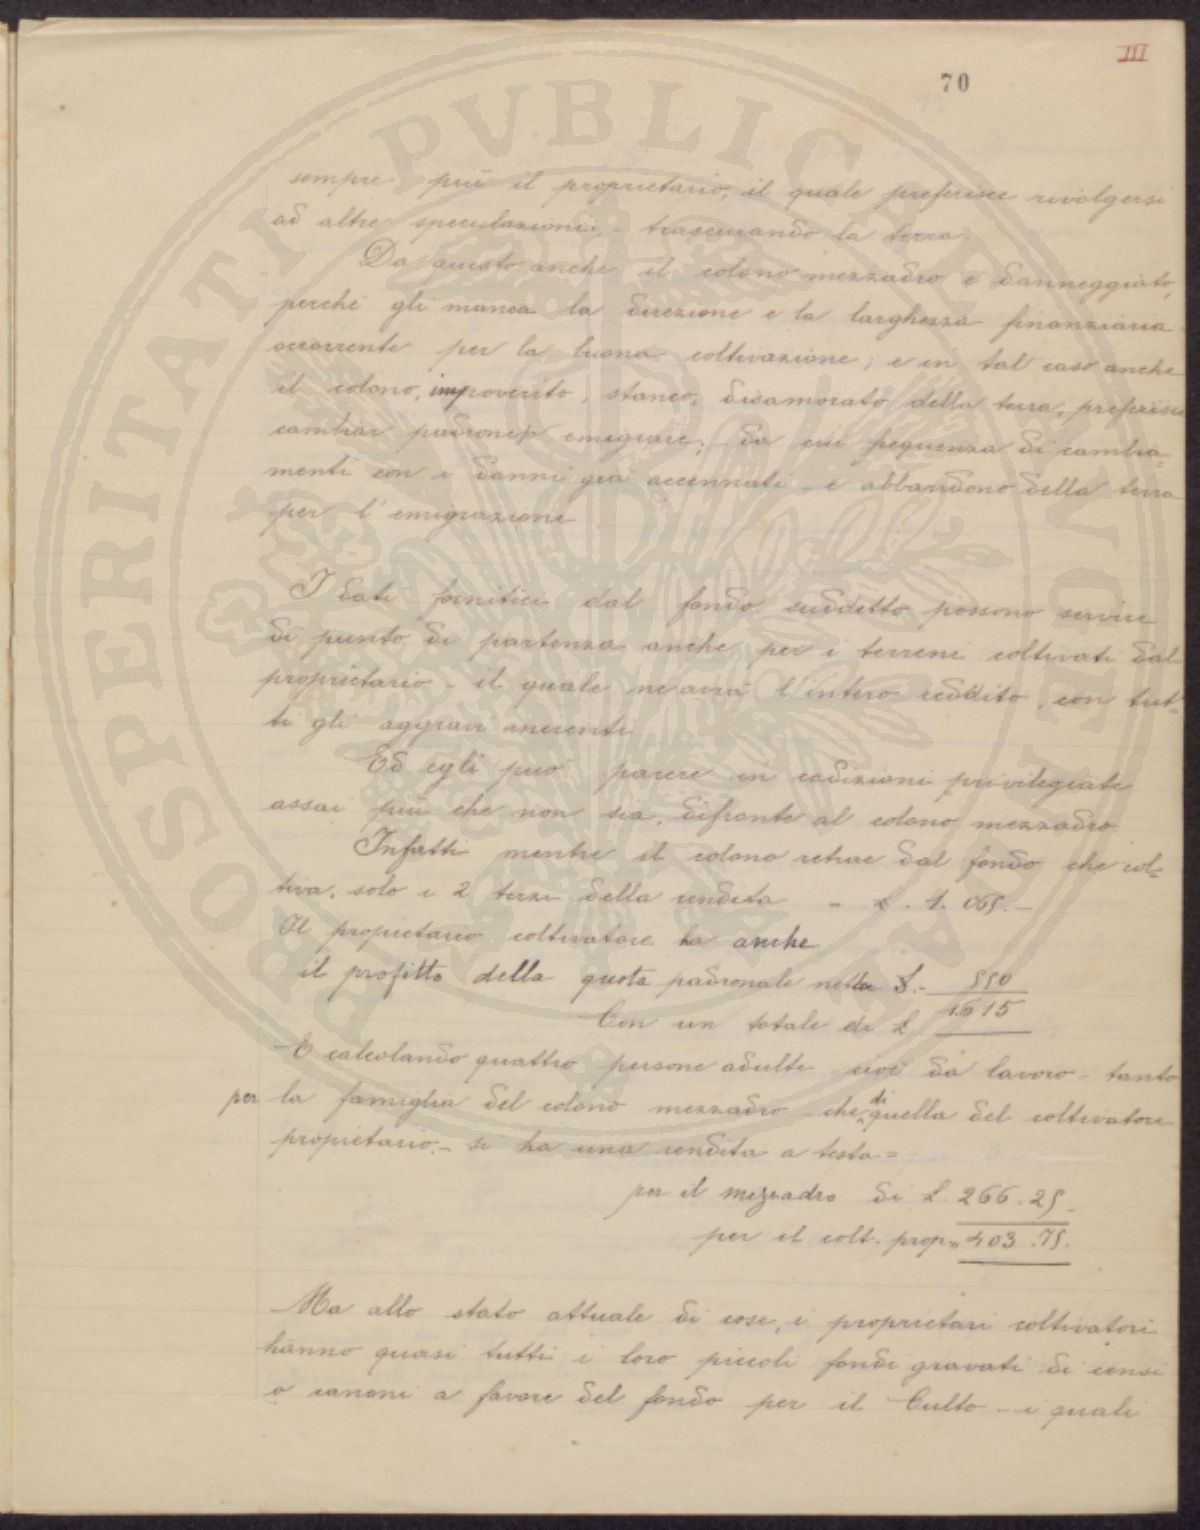 III
70
sempre più il proprietario, il quale preferisce rivolgersi
ad altre speculazioni, - trascurando la terra.
Da questo anche il colono mezzadro è danneggiato,
perchè gli manca la direzione e la larghezza finanziaria
occorrente per la buona coltivazione; e in tal caso anche
il colono, impoverito, stanco, disamorato della terra, preferisce
cambiar padrone emigrare; da cui frequenza di cambia=
menti con i danni già accennati - e abbandono della terra
per l'emigrazione
I dati fornitici dal fondo suddetto possono servire
di punto di partenza anche per i terreni coltivati dal
proprietario - il quale ne avrà l'intero reddito, con tut=
ti gli aggravi inerenti
Ed egli può parere in codizioni privilegiate
assai più che non sia, difronte al colono mezzadro
Infatti mentre il colono retrae dal fondo che col=
tiva, solo i 2 terzi della rendita - £. 1.065.-
Il proprietario coltivatore ha anche
il profitto della quota padronale netta £.- 550
Con un totale di £ 1615
E calcolando quattro persone adulte cioè da lavoro - tanto
per la famiglia del colono mezzadro - che di quella del coltivatore
proprietario. - si ha una rendita a testa =
per il mezzadro di £ 266.25.
per il colt. prop. " 403.75.
Ma allo stato attuale di cose, i proprietari coltivatori
hanno quasi tutti i loro piccoli fondi gravati di censi
o canoni a favore del fondo per il Culto - i quali
PVBLICAE
PROSPERITATI